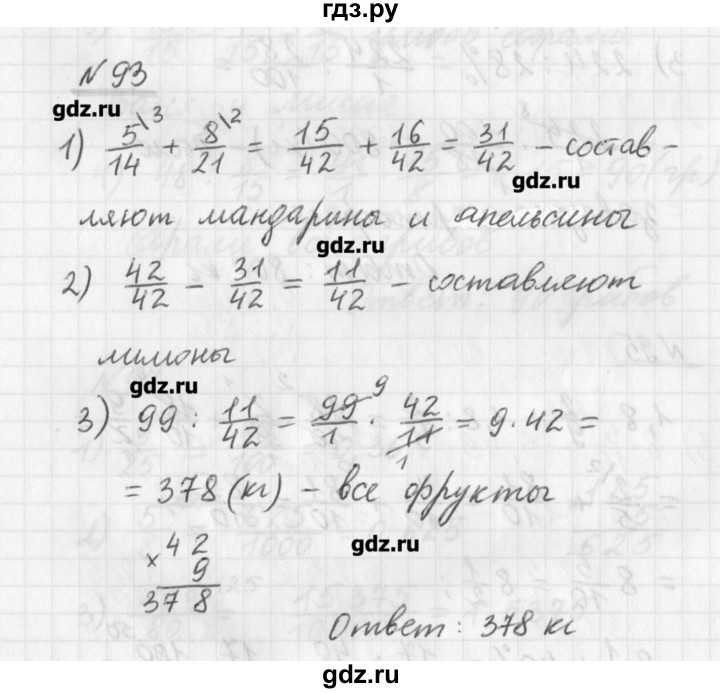 гдз.ру
N 93
gdz.ru
1) 5/14 \3 + 8/21 \2 = 15/42 + 16/42 = 31/42 – состав –
gdz.ru
ляют мандарины и апельсины
gdz.ru
2) 42/42 – 31/42 = 11/42 – составляют
лимоны
gdz.ru
3) 99 : 11/42 = 99/1 9 · 42/11 1 = 9 · 42 =
= 378 (кг) – все фрукты
gdz.ru
42
× 9
378
Ответ : 378 кг
gdz.ru